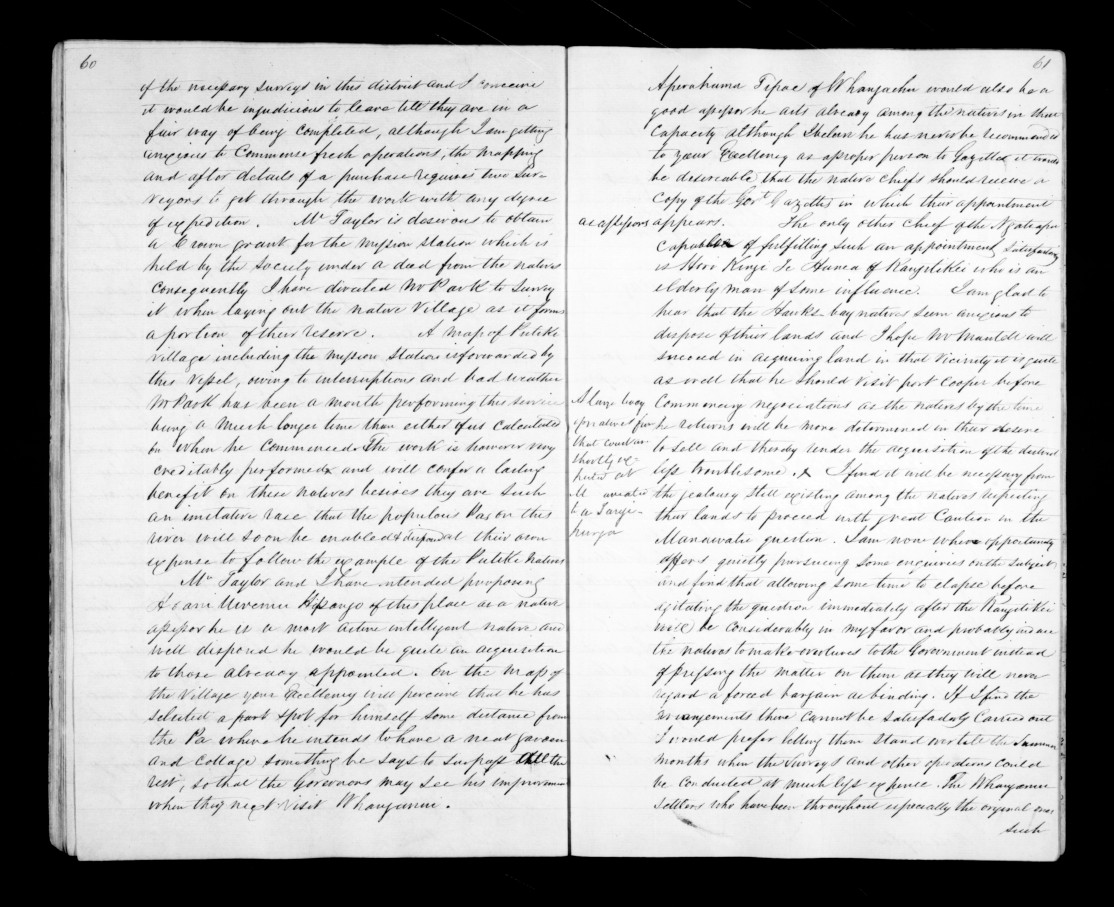 60
of the necessary surveys in this district and I conceive
it would be injudicious to leave till they are in a
fair way of being completed, although I am getting
anxious to Commence fresh operations, the mapping
and after details of a purchase requires two Sur-
veyors to get through the work with any degree
of expedition. Mr Taylor is desirous to obtain
a Crown grant for the Mission Station which is
held by the Society under a deed from the natives
Consequently I have directed Mr Park to Survey
it when laying out the native Village as it forms
a portion of their reserve. A map of Putiki
Village including the Mission Station is forwarded by
this Vessel, owing to interruptions and bad weather
Mr Park has been a month performing this service
being a much longer time than either of us calculated
on when he commenced. The work is however very
creditably performed and will confer a lasting
benefit on these natives besides they are such
an imitative race that the populous Pas on this
river will soon be enabled & disposed at their own
expense to follow the example of the Putiki natives
Mr Taylor and I have intended proposing
Hoani Wiremu Hipango of this place as a native
assessor he is a most active intelligent native and
well disposed he would be quite an acquisition
to those already appointed. On the map of
the Village your Excellency will perceive that he has
selected a spot for himself some distance from
the Pa where he intends to have a neat garden
and Cottage something he says to surpass all the
rest, so that the Governors may see his improvements
when they next visit Whanganui.
61
Aperahama Tipae of Whangaehu would also be a
good assessor he acts already among the natives in that
Capacity although I believe he has never be recommended
to your Excellency as a proper person to Gazette it would
be desireable that the native chiefs should receive a
Copy of the Govt Gazettes in which their appointment
as assessors appears. The only other Chief of the Ngatiapa
Capable of fulfilling such an appointment satisfactorily
is Hori Kingi Te Hanea of Rangitikei who is an
elderly man of some influence. I am glad to
hear that the Hawks bay natives seem anxious to
dispose of their lands and I hope Mr Mantell will
succeed in acquiring land in that vicinity it is quite
as well that he should visit port Cooper before
Commencing negociations as the natives by the time
he returns will be more determined in their desire
to sell and thereby render the acquisition of the district
less troublesome. x I find it will be necessary from
the jealousy still existing among the natives respecting
their lands to proceed with great Caution in the
Manawatu question. I am now where opportunity
offers quietly pursueing some enquiries on the subject
and find that allowing some time to elapse before
agitating the question immediately after the Rangitikei
will be considerably in my favor and probably induce
the natives to make overtures to the Government instead
of pressing the matter on them as they will never
regard a forced bargain as binding. If I find the
arrangements there cannot be satisfactorily carried out
I would prefer letting them stand over till the summer
months when the Surveys and other operations could
be conducted at much less expence. The Whanganui
Settlers who have been throughout especially the original ones
such
A large body
of natives from
that
shortly ex-
pected at